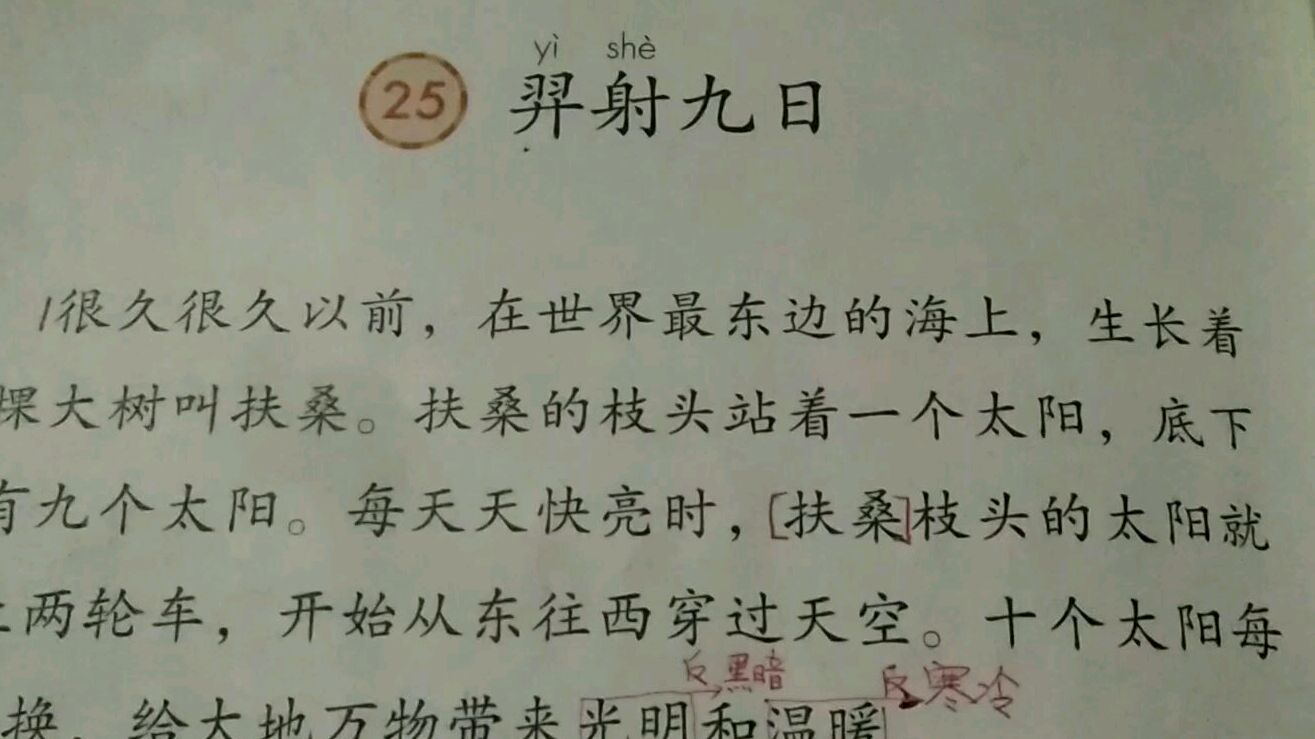 yì shè
25 羿射九日
1很久很久以前，在世界最东边的海上，生长着
棵大树叫扶桑。扶桑的枝头站着一个太阳，底下
有九个太阳。每天天快亮时，[扶桑]枝头的太阳就
上两轮车，开始从东往西穿过天空。十个太阳每
反黑暗 反寒冷
换，给大地万物带来光明和温暖